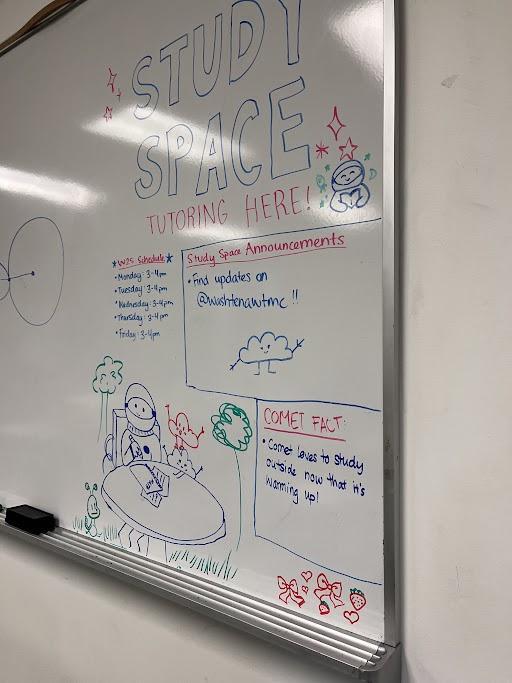 STUDY
SPACE
TUTORING HERE!
W25 Schedule
• Monday: 3-4pm
• Tuesday: 3-4pm
• Wednesday: 3-4pm
• Thursday: 3-4pm
• Friday: 3-4pm
Study Space Announcements
• Find updates on
@washtenawtmc !!
COMET FACT:
• Comet loves to study
outside now that it's
warming up!